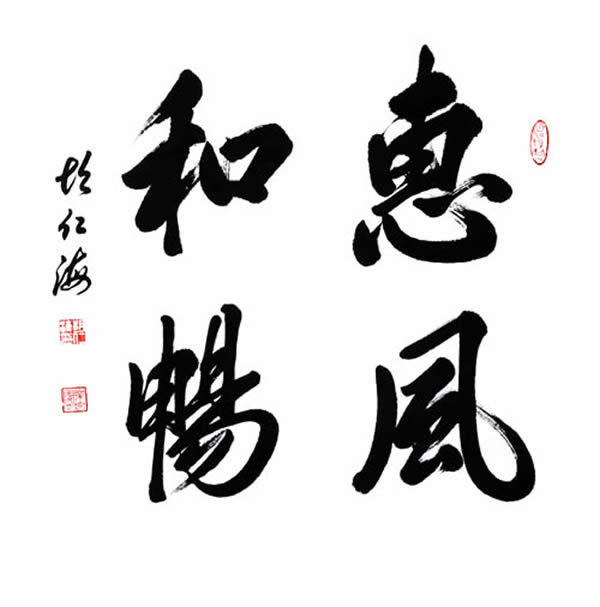 惠風
和暢
胡仁海